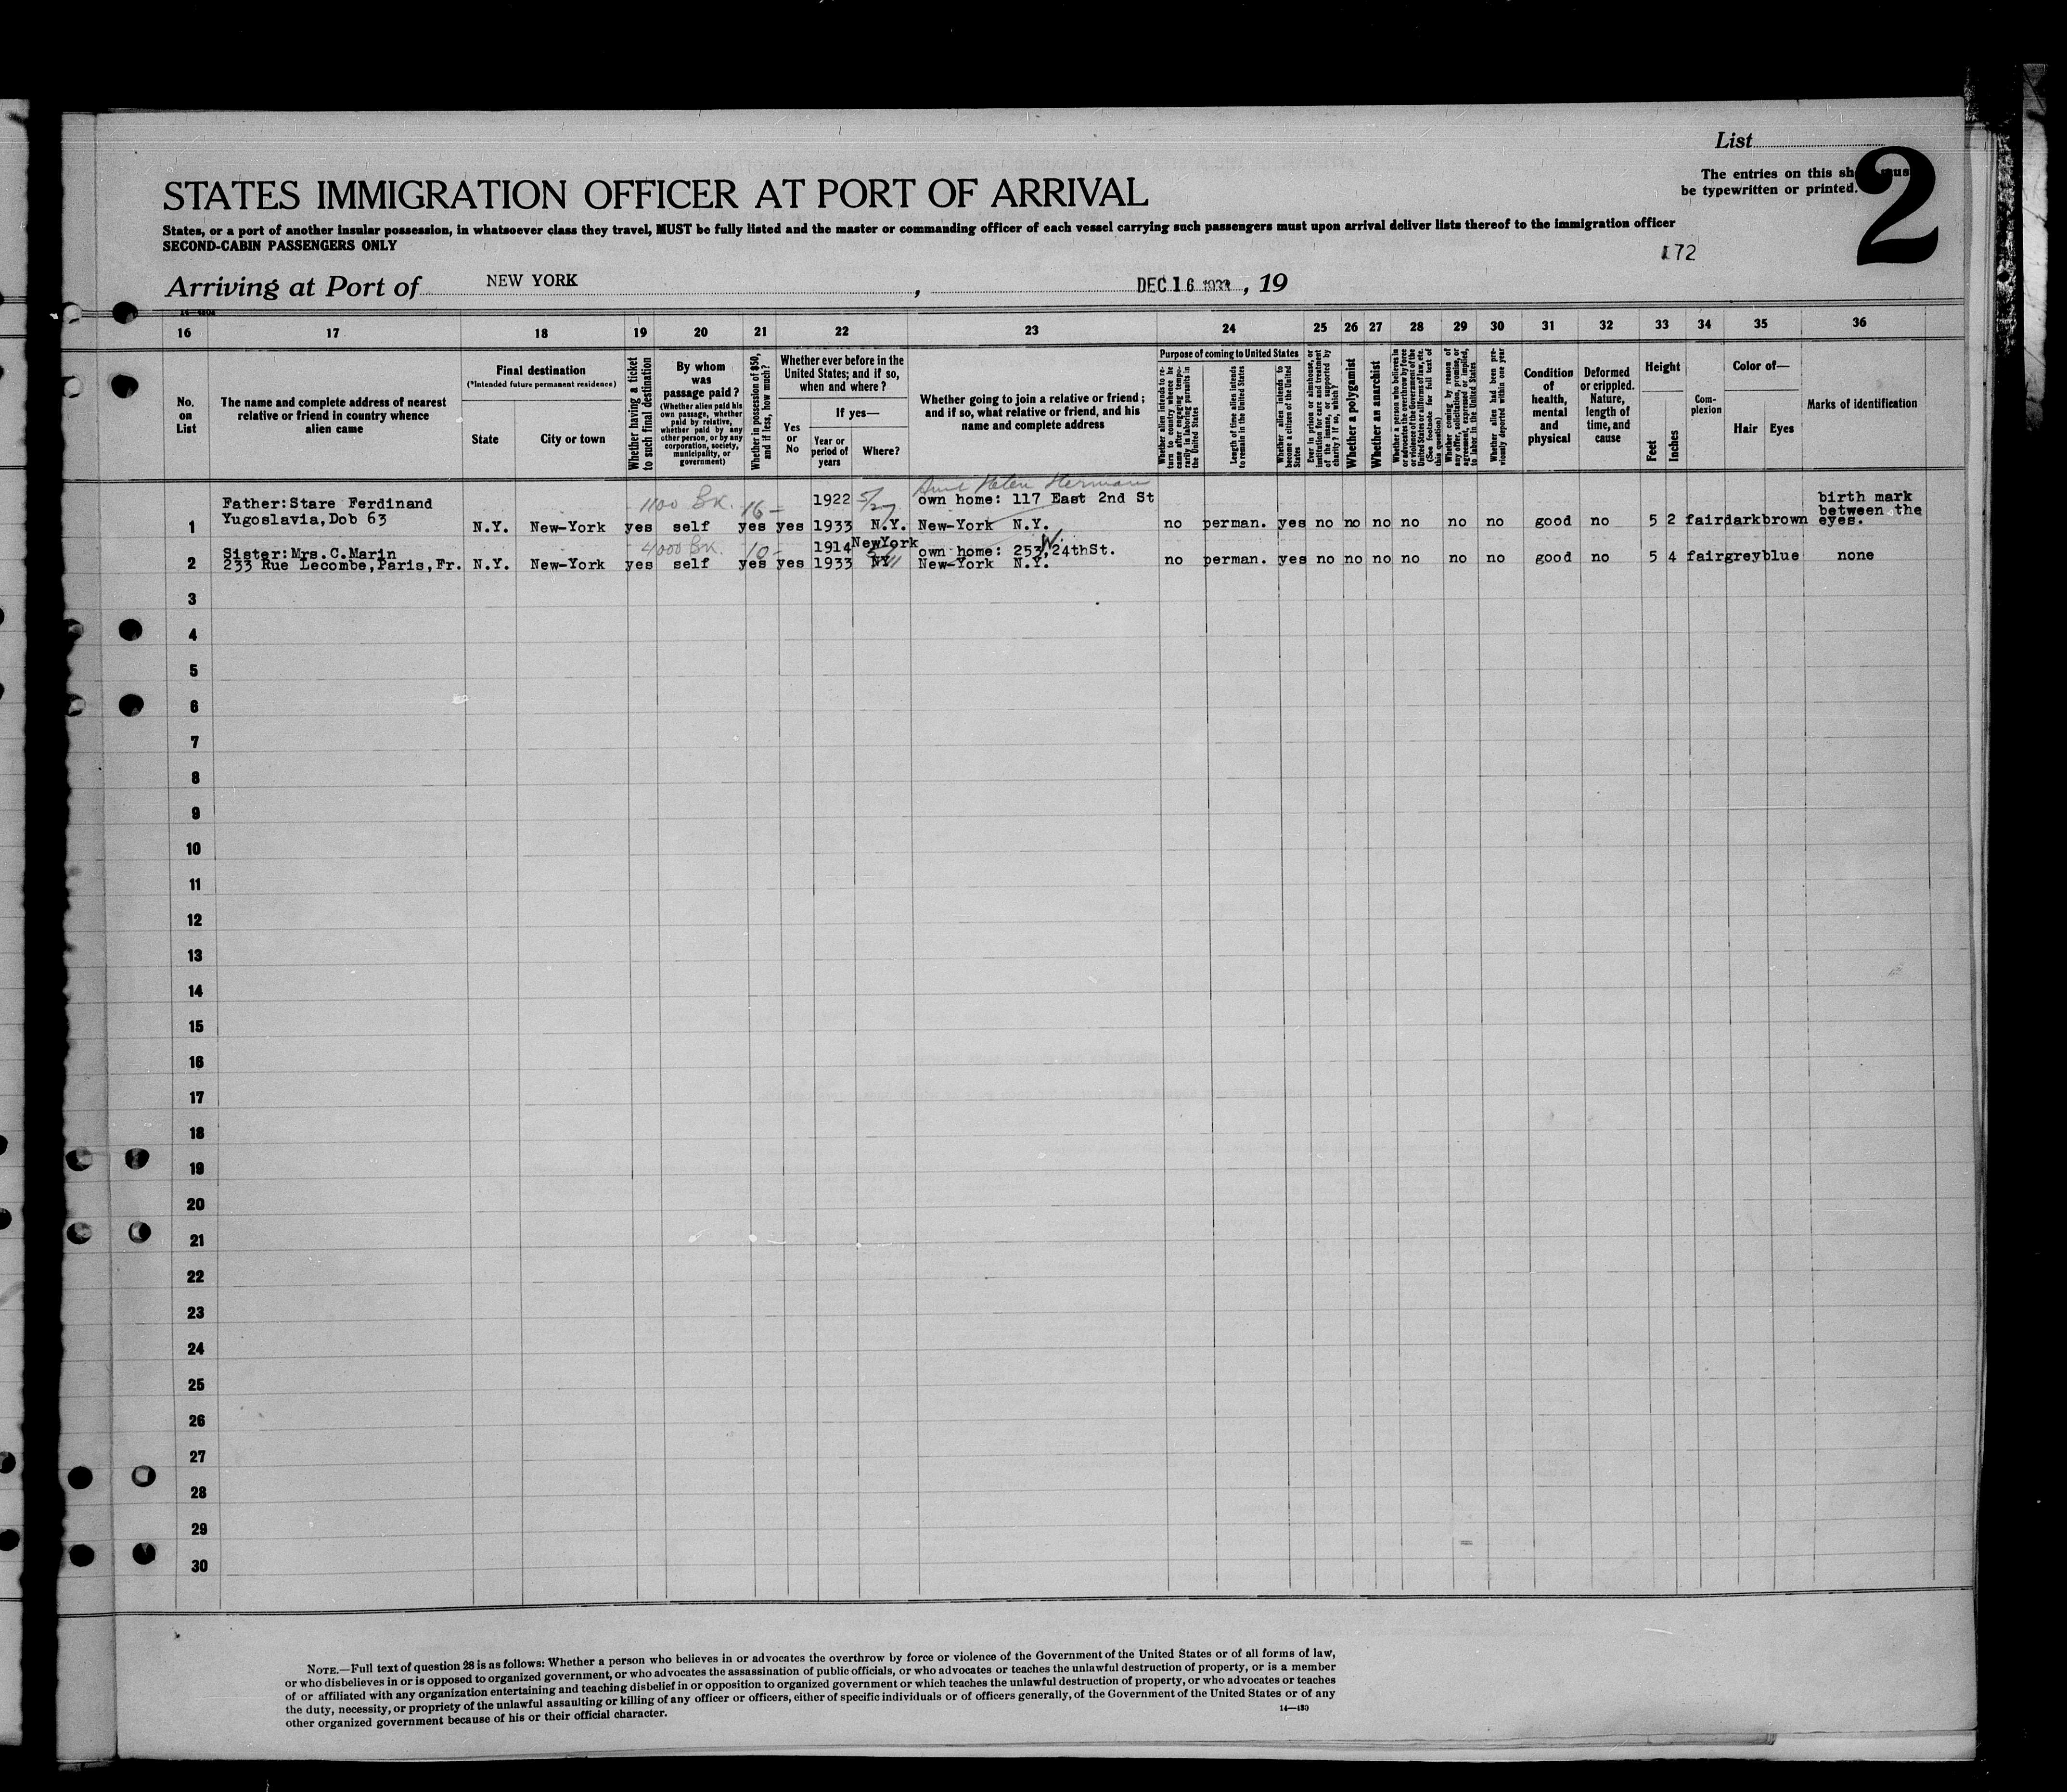 List
The entries on this sh
be typewritten or printed.
2
STATES IMMIGRATION OFFICER AT PORT OF ARRIVAL
States, or a port of another insular possession, in whatsoever class they travel, MUST be fully listed and the master or commanding officer of each vessel carrying such passengers must upon arrival deliver lists thereof to the immigration officer
SECOND-CABIN PASSENGERS ONLY
172
Arriving at Port of NEW YORK , DEC 16 1933 , 19
16 17 18 19 20 21 22 23 24 25 26 27 28 29 30 31 32 33 34 35 36
No. on List
The name and complete address of nearest relative or friend in country whence alien came
Final destination
(*Intended future permanent residence)
State
City or town
Whether having a ticket to such final destination
By whom was passage paid?
(Whether alien paid his own passage, whether paid by relative, whether paid by any other person, or by any corporation, society, municipality, or government)
Whether in possession of $50, and if less, how much?
Whether ever before in the United States; and if so, when and where?
Yes or No
If yes—
Year or period of years
Where?
Whether going to join a relative or friend; and if so, what relative or friend, and his name and complete address
Purpose of coming to United States
Whether alien intends to return to country whence he came after engaging temporarily in laboring pursuits in the United States
Length of time alien intends to remain in the United States
Whether alien intends to become a citizen of the United States
Ever in prison or almshouse, or institution for care and treatment of the insane, or supported by charity? If so, which?
Whether a polygamist
Whether an anarchist
Whether a person who believes in or advocates the overthrow by force or violence of the Government of the United States or all forms of law, etc. (See footnote for full text of this question)
Whether coming by reason of any offer, solicitation, promise, or agreement, expressed or implied, to labor in the United States
Whether alien had been previously deported within one year
Condition of health, mental and physical
Deformed or crippled. Nature, length of time, and cause
Height
Feet
Inches
Complexion
Color of—
Hair
Eyes
Marks of identification
Aunt Helen Hermann
Father:Stare Ferdinand 1100 Bk. 16- 1922 5/27 own home: 117 East 2nd St birth mark
Yugoslavia,Dob 63 between the
1 N.Y. New-York yes self yes yes 1933 N.Y. New-York N.Y. no perman. yes no no no no no no good no 5 2 fair dark brown eyes.
Sister:Mrs.C.Marin 4000 Bk. 10- 1914 NewYork own home: 253 W. 24thSt.
2 233 Rue Lecombe,Paris,Fr. N.Y. New-York yes self yes yes 1933 NY New-York N.Y. no perman. yes no no no no no no good no 5 4 fair grey blue none
3
4
5
6
7
8
9
10
11
12
13
14
15
16
17
18
19
20
21
22
23
24
25
26
27
28
29
30
NOTE.—Full text of question 28 is as follows: Whether a person who believes in or advocates the overthrow by force or violence of the Government of the United States or of all forms of law,
or who disbelieves in or is opposed to organized government, or who advocates the assassination of public officials, or who advocates or teaches the unlawful destruction of property, or is a member
of or affiliated with any organization entertaining and teaching disbelief in or opposition to organized government or which teaches the unlawful destruction of property, or who advocates or teaches
the duty, necessity, or propriety of the unlawful assaulting or killing of any officer or officers, either of specific individuals or of officers generally, of the Government of the United States or of any
other organized government because of his or their official character.
14—430